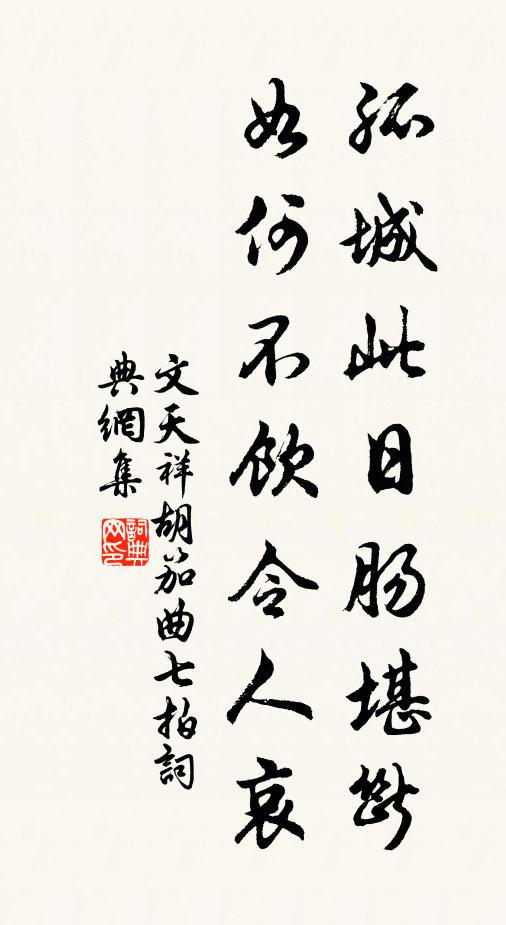 孤城此日腸堪斷
如何不飲令人哀
文天祥胡笳曲七拍詞
典網集
詞典网印